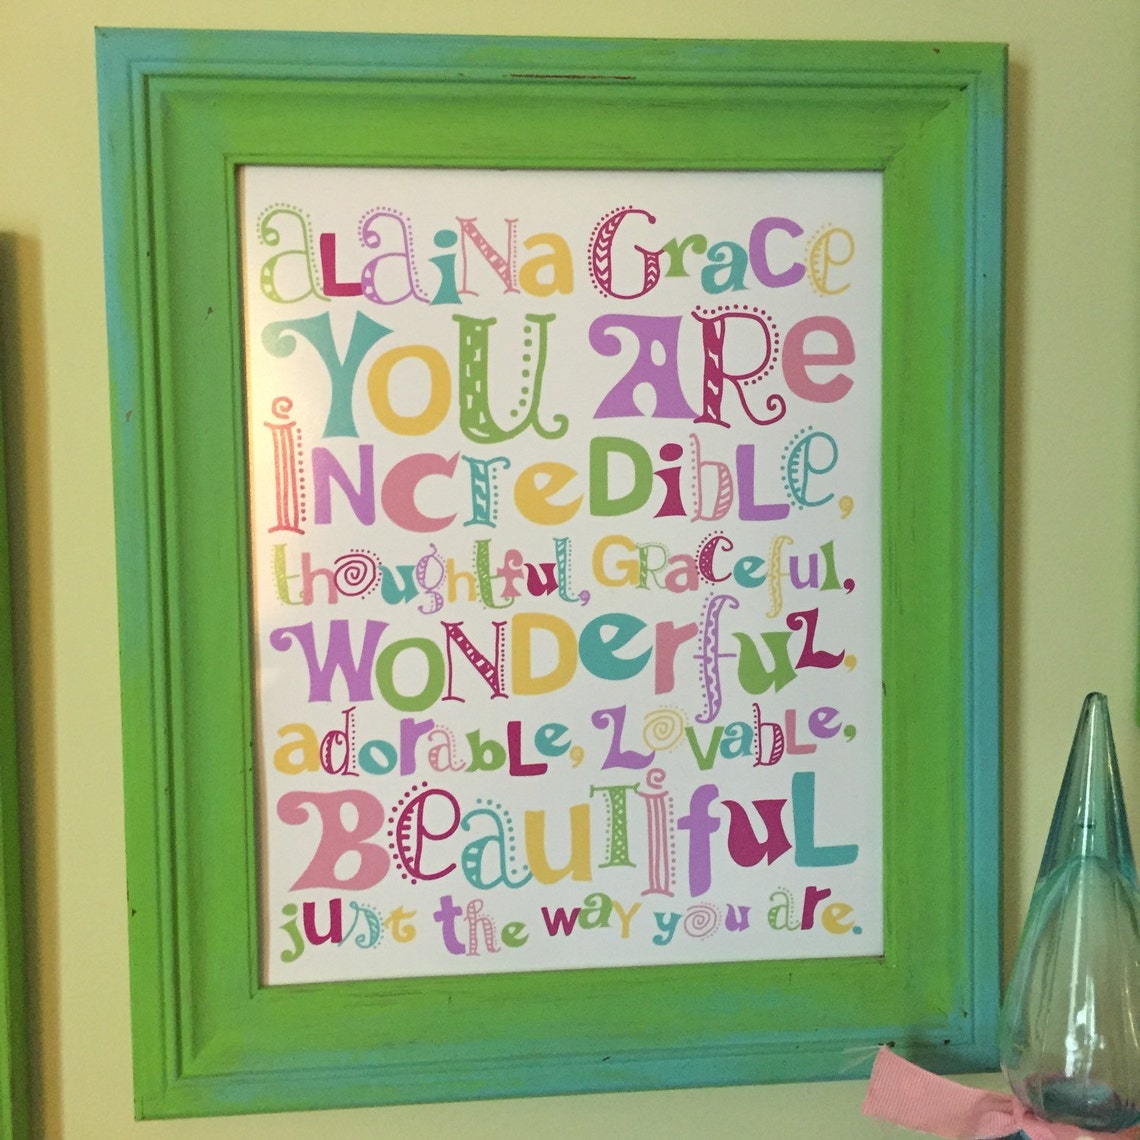 aLaiNa Grace
YOU ARe
iNCreDibLe,
thoughtful, GRaCeful,
WONDerfuL,
adorabLe, Lovable,
BeauTifuL
just the way you are.